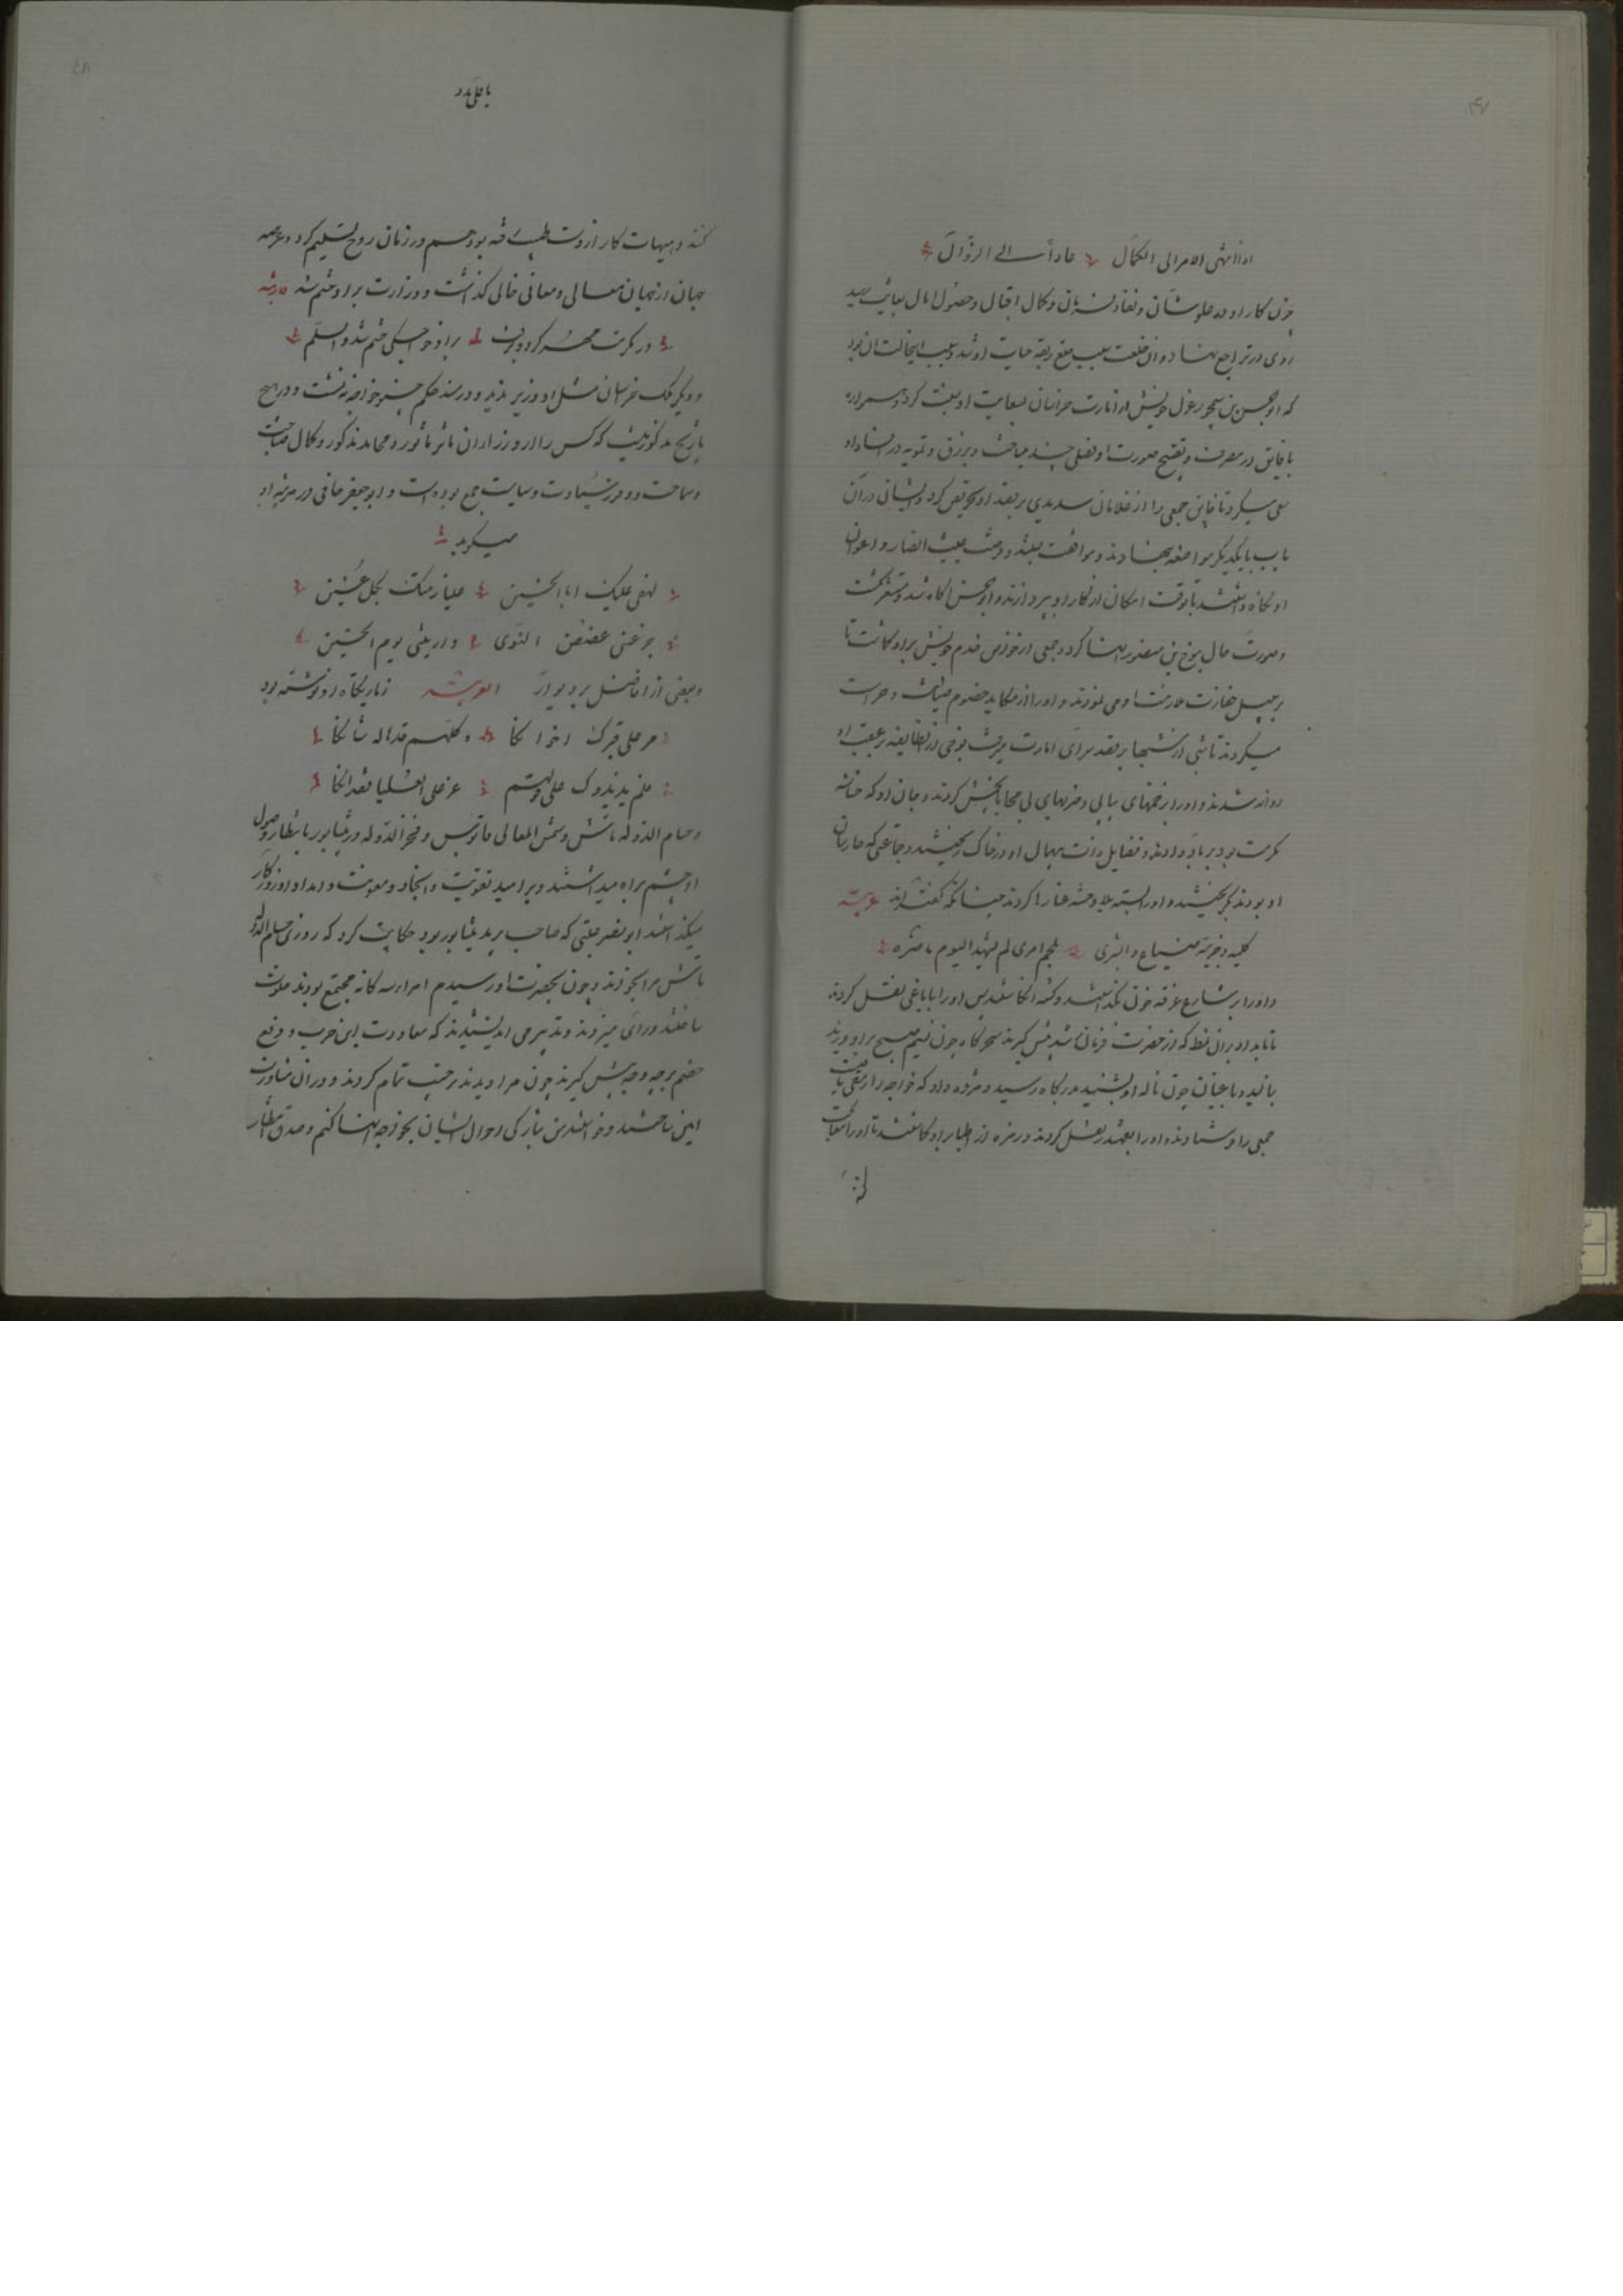 اذا انتهی الامر الی الکمال عاد الی الزوال
چون کار او در علو شان و نفاذ فرمان و کمال اقبال و حصول امال بغایت رسید
روی در تراجع نهاد و ان خلعت سبب خلع ربقه حیات او شد و سبب این حالت ان بود
که ابو الحسن بن سیمجور عزل خویش از امارت خراسان بسعایت او نسبت کرد و همواره
با فایق در مصرف و تقبیح صورت او فصلی چند مباحثت و بزرق و تمویه در افساد او
سعی میکرد تا فایق جمعی را از غلامان سدیدی بر قصد او تحریض کرد و ایشان در آن
باب با یکدیگر مواضعه نهادند و موافقت ببستند و فرصت غیبت انصار و اعوان
او نگاه داشتند تا بوقت امکان از کار او بپردازند و ابو الحسن اگاه شد و مستشعر گشت
و صورت حال بنوح بن منصور انها کرد و جمعی از خواص خدم خویش بر او گماشت تا
بر سبیل خفارت ملازمت او می نمودند و او را از مکاید خصوم صیانت و حراست
میکردند تا شبی از شبها بر قصد سرای امارت برفت فوجی از ان طایفه بر عقب او
روانه شدند و او را بزخمهای پیاپی و ضربهای بی محابا بخش کردند و جان او که خانه
کرمت بود بر باد دادند و فضایل ذات بیهمال او در خاک ریختند و جماعتی که حارسان
او بودند بگریختند و او را بسته بلا و خسته عنا رها کردند چنانکه گفته اند عربیه
کلیه و جریه ضباع و ابشری بلحم امری لم یشهد الیوم ناصره
و او را بر شارع غرقه خون بگذاشتند و کشته انگاشتند پس او را با باغی نقل کردند
تا بامداد بران نمط که از حضرت فرمان باشد پیش گیرند سحرگاه چون نسیم صبح بر او وزید
بنالید و باغبان چون ناله او بشنید بدرگاه رسید و مژده داد که خواجه را رمقی باقیست
جمعی را فرستادند و او را بقهندز نقل کردند و زمره از اطبا بر او گماشتند تا او را معالجت
کنند
یا علی مدد
کنند و هیهات کار از دست طبیب رفته بود هم در زمان روح تسلیم کرد و عرصه
جهان از جهان معالی و معانی خالی گذاشت و وزارت بر او ختم شد
در کرمت مهر کرد و برفت بر او خواجگی ختم شد و السلم
و دیگر ملک خراسان مثل او وزیر ندید و در مسند حکم چنو خواجه ننشست و در هیچ
تاریخ مذکور نیست که کس را از وزرا ان ماثر ماثور و محامد مذکور و کمال صباحت
و سماحت و وفور سیادت و سیاست جمع بوده است و ابو جعفر خافی در مرثیه او
میگوید
لهفی علیک ابا الحسین علیا رمتک بکل عین
جرعتنی غصص النوی و اریتنی یوم الحسین
و بعضی از افاضل بر دیوار زیارتگاه او نوشته بود
مر علی قبرک اخوانکا و کلهم قد هاله شانکا
فلم یزیدوک علی قولهم عز علی العلیا فقدانکا
و حسام الدوله تاش و شمس المعالی قابوس و فخر الدوله در نیشابور بانتظار وصول
او چشم براه میداشتند و بر امید تقویت و انجاد و معونت و امداد او روزگار
میگذاشتند ابو نصر عتبی که صاحب برید نیشابور بود حکایت کرد که روزی حسام الدوله
تاش مرا بخواند و چون بحضرت او رسیدم امراء سه گانه مجتمع بودند خلوت
ساخته و رای میزدند و تدبیر می اندیشیدند که معاودت این حرب و دفع
خصم بر چه وجه پیش گیرند چون مرا دیدند ترحیب تمام کردند و در ان مشاورت
امین ساختند و خواستند من بتازگی احوال ایشان بخواجه انها کنم و صدق انتظار